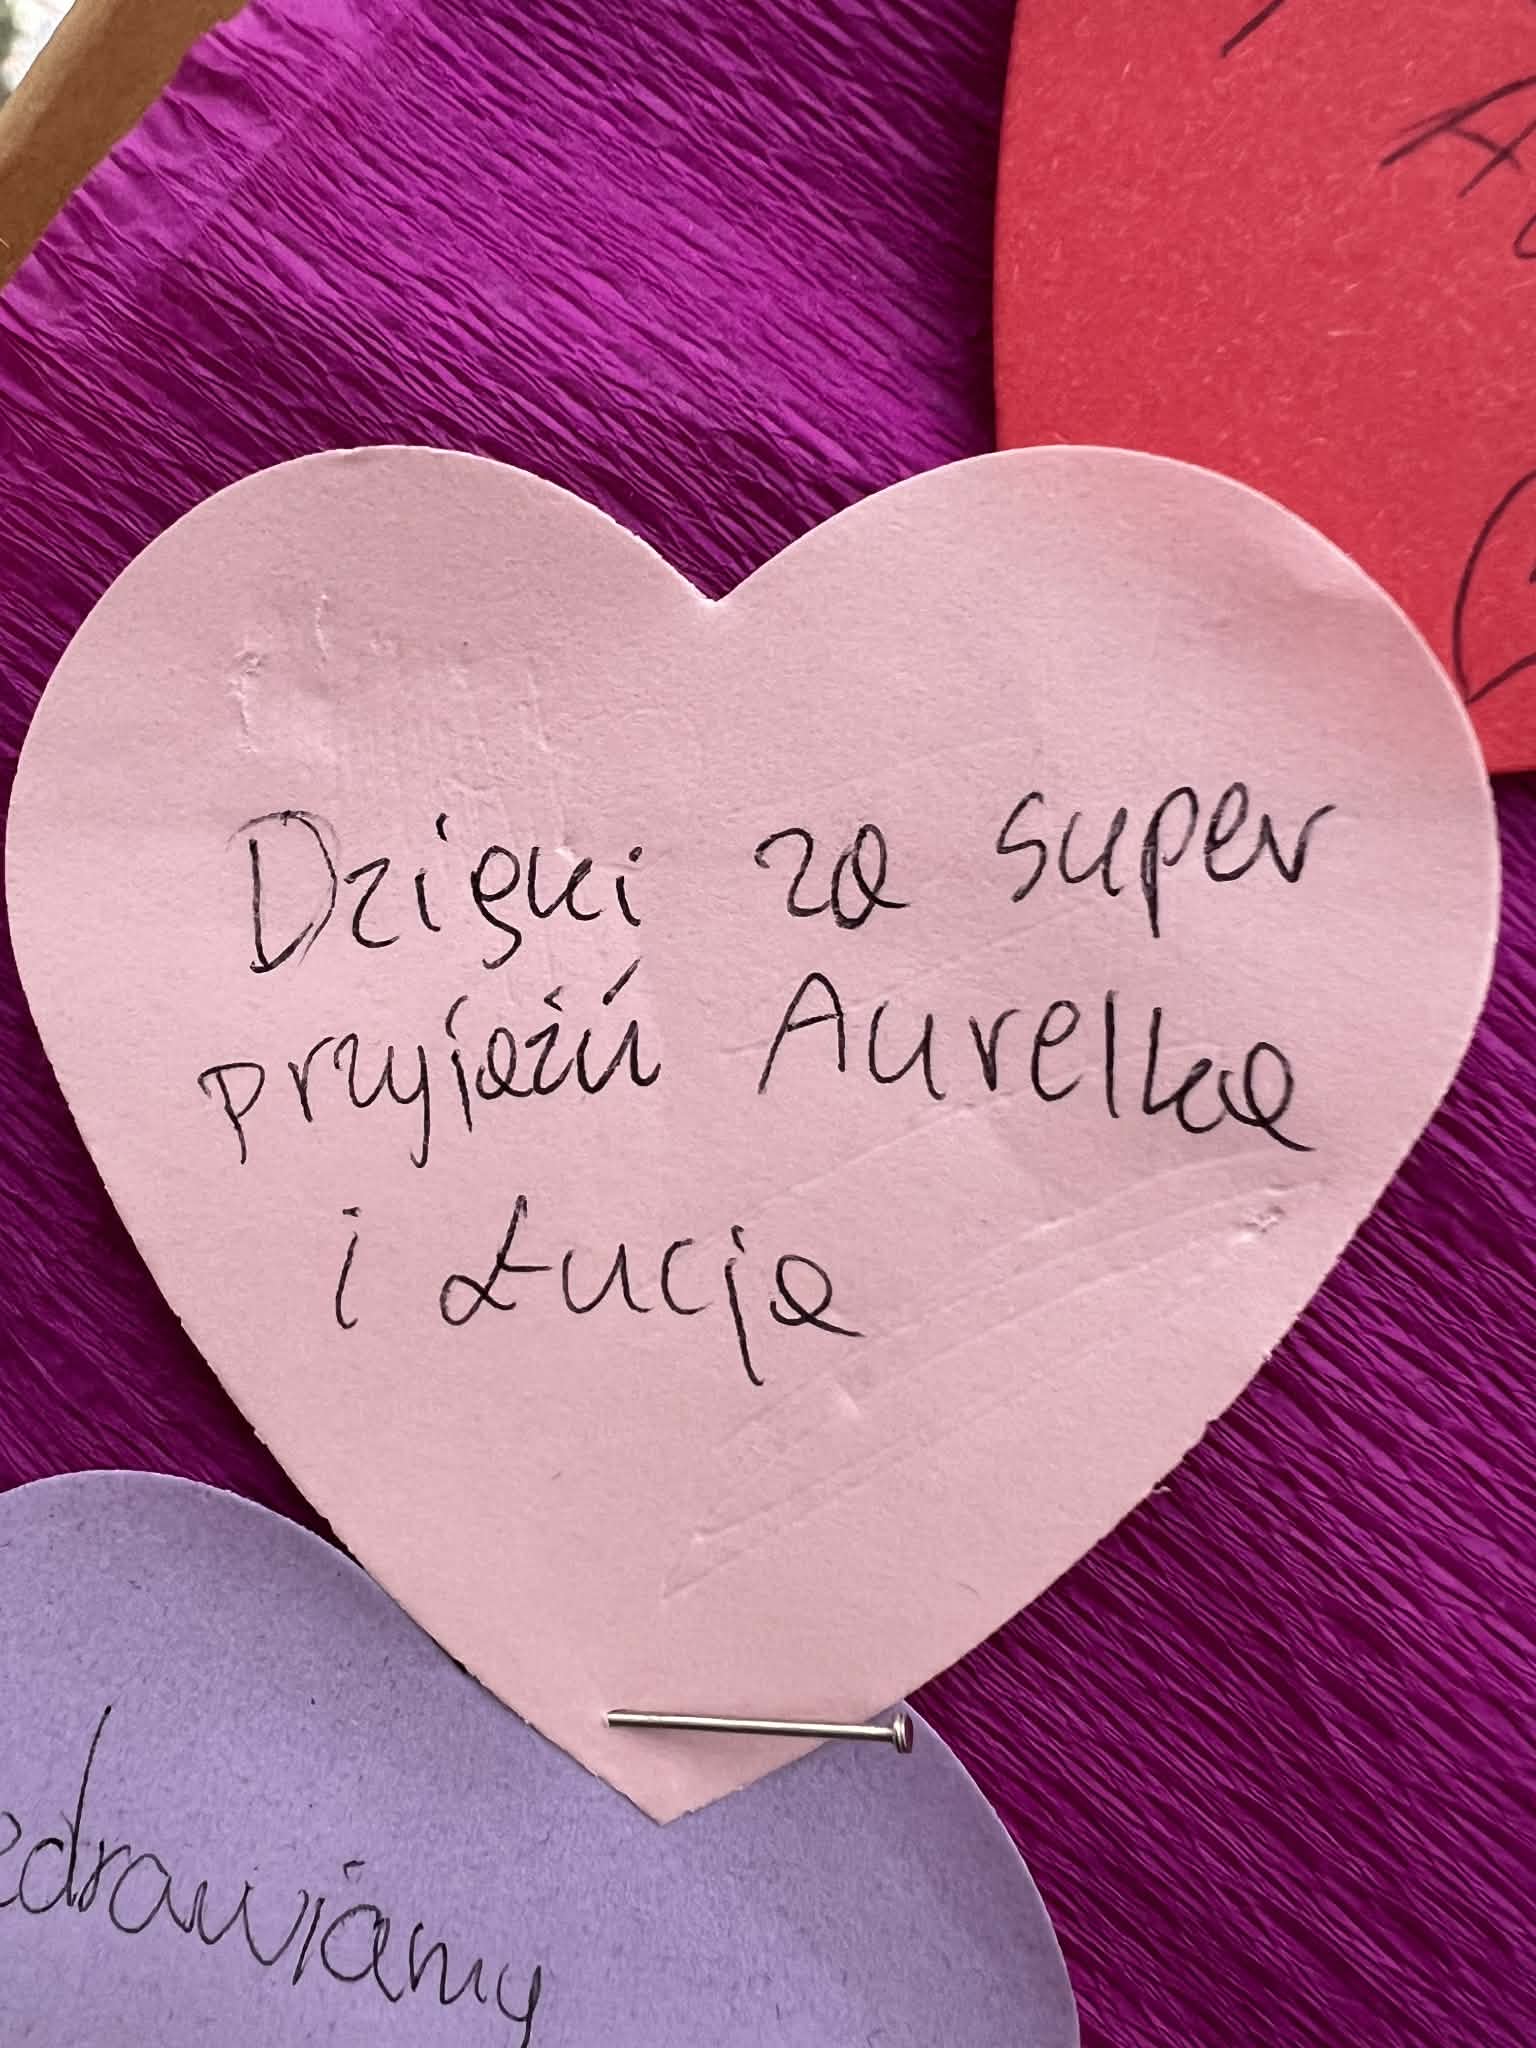 Dzięki za super
przyjaźń Aurelka
i Łucja
zdrawiamy